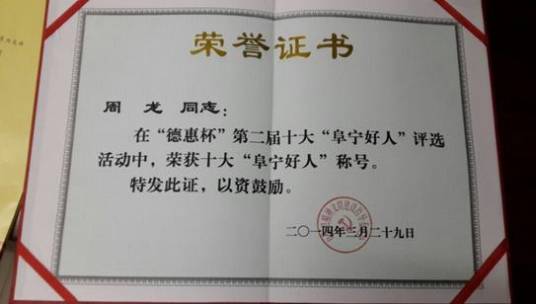 荣誉证书
周龙 同志：
在“德惠杯”第二届十大“阜宁好人”评选
活动中，荣获十大“阜宁好人”称号。
特发此证，以资鼓励。
二〇一四年三月二十九日